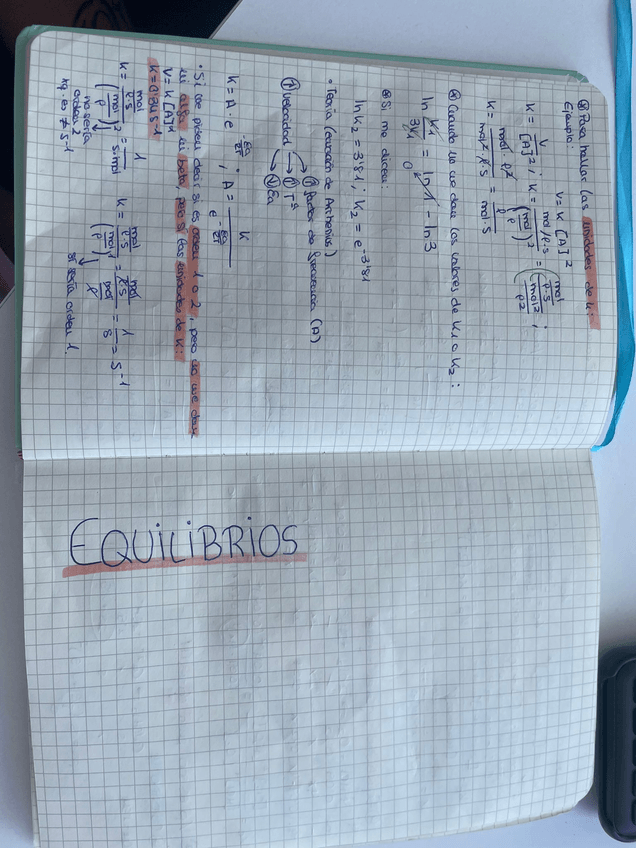 ⊛ Para hallar las unidades de k:
Ejemplo:
V = K [A]²
K = V / [A]² ; K = (mol/ℓ·s) / (mol/ℓ)² = (mol/ℓ·s) / (mol²/ℓ²) ;
K = mol · ℓ² / mol² · ℓ · s = ℓ / mol · s
⊛ Cuando no me dan los valores de K₁ o K₂:
ln K₁ / 3K₁ = ln 1 - ln 3
0
⊛ Si me dicen:
ln K₂ = 3'81 ; K₂ = e^-3'81
• Teoría (ecuación de Arrhenius)
↑ factor de frecuencia (A)
↑ Velocidad → ↑ Tª
↓ Ea
K = A · e^-Ea/RT ; A = K / e^-Ea/RT
• Si me piden decir si es orden 1 o 2, pero no me dan
ni alfa ni beta, pero sí las unidades de k:
V = K [A]^α
K = (mol/ℓ·s) / (mol/ℓ)² = 1 / s·mol
K = (mol/ℓ·s) / (mol/ℓ)¹ = 1/s = s⁻¹
no sería
orden 2
≠ s⁻¹
sí sería orden 1.
EQUILIBRIOS